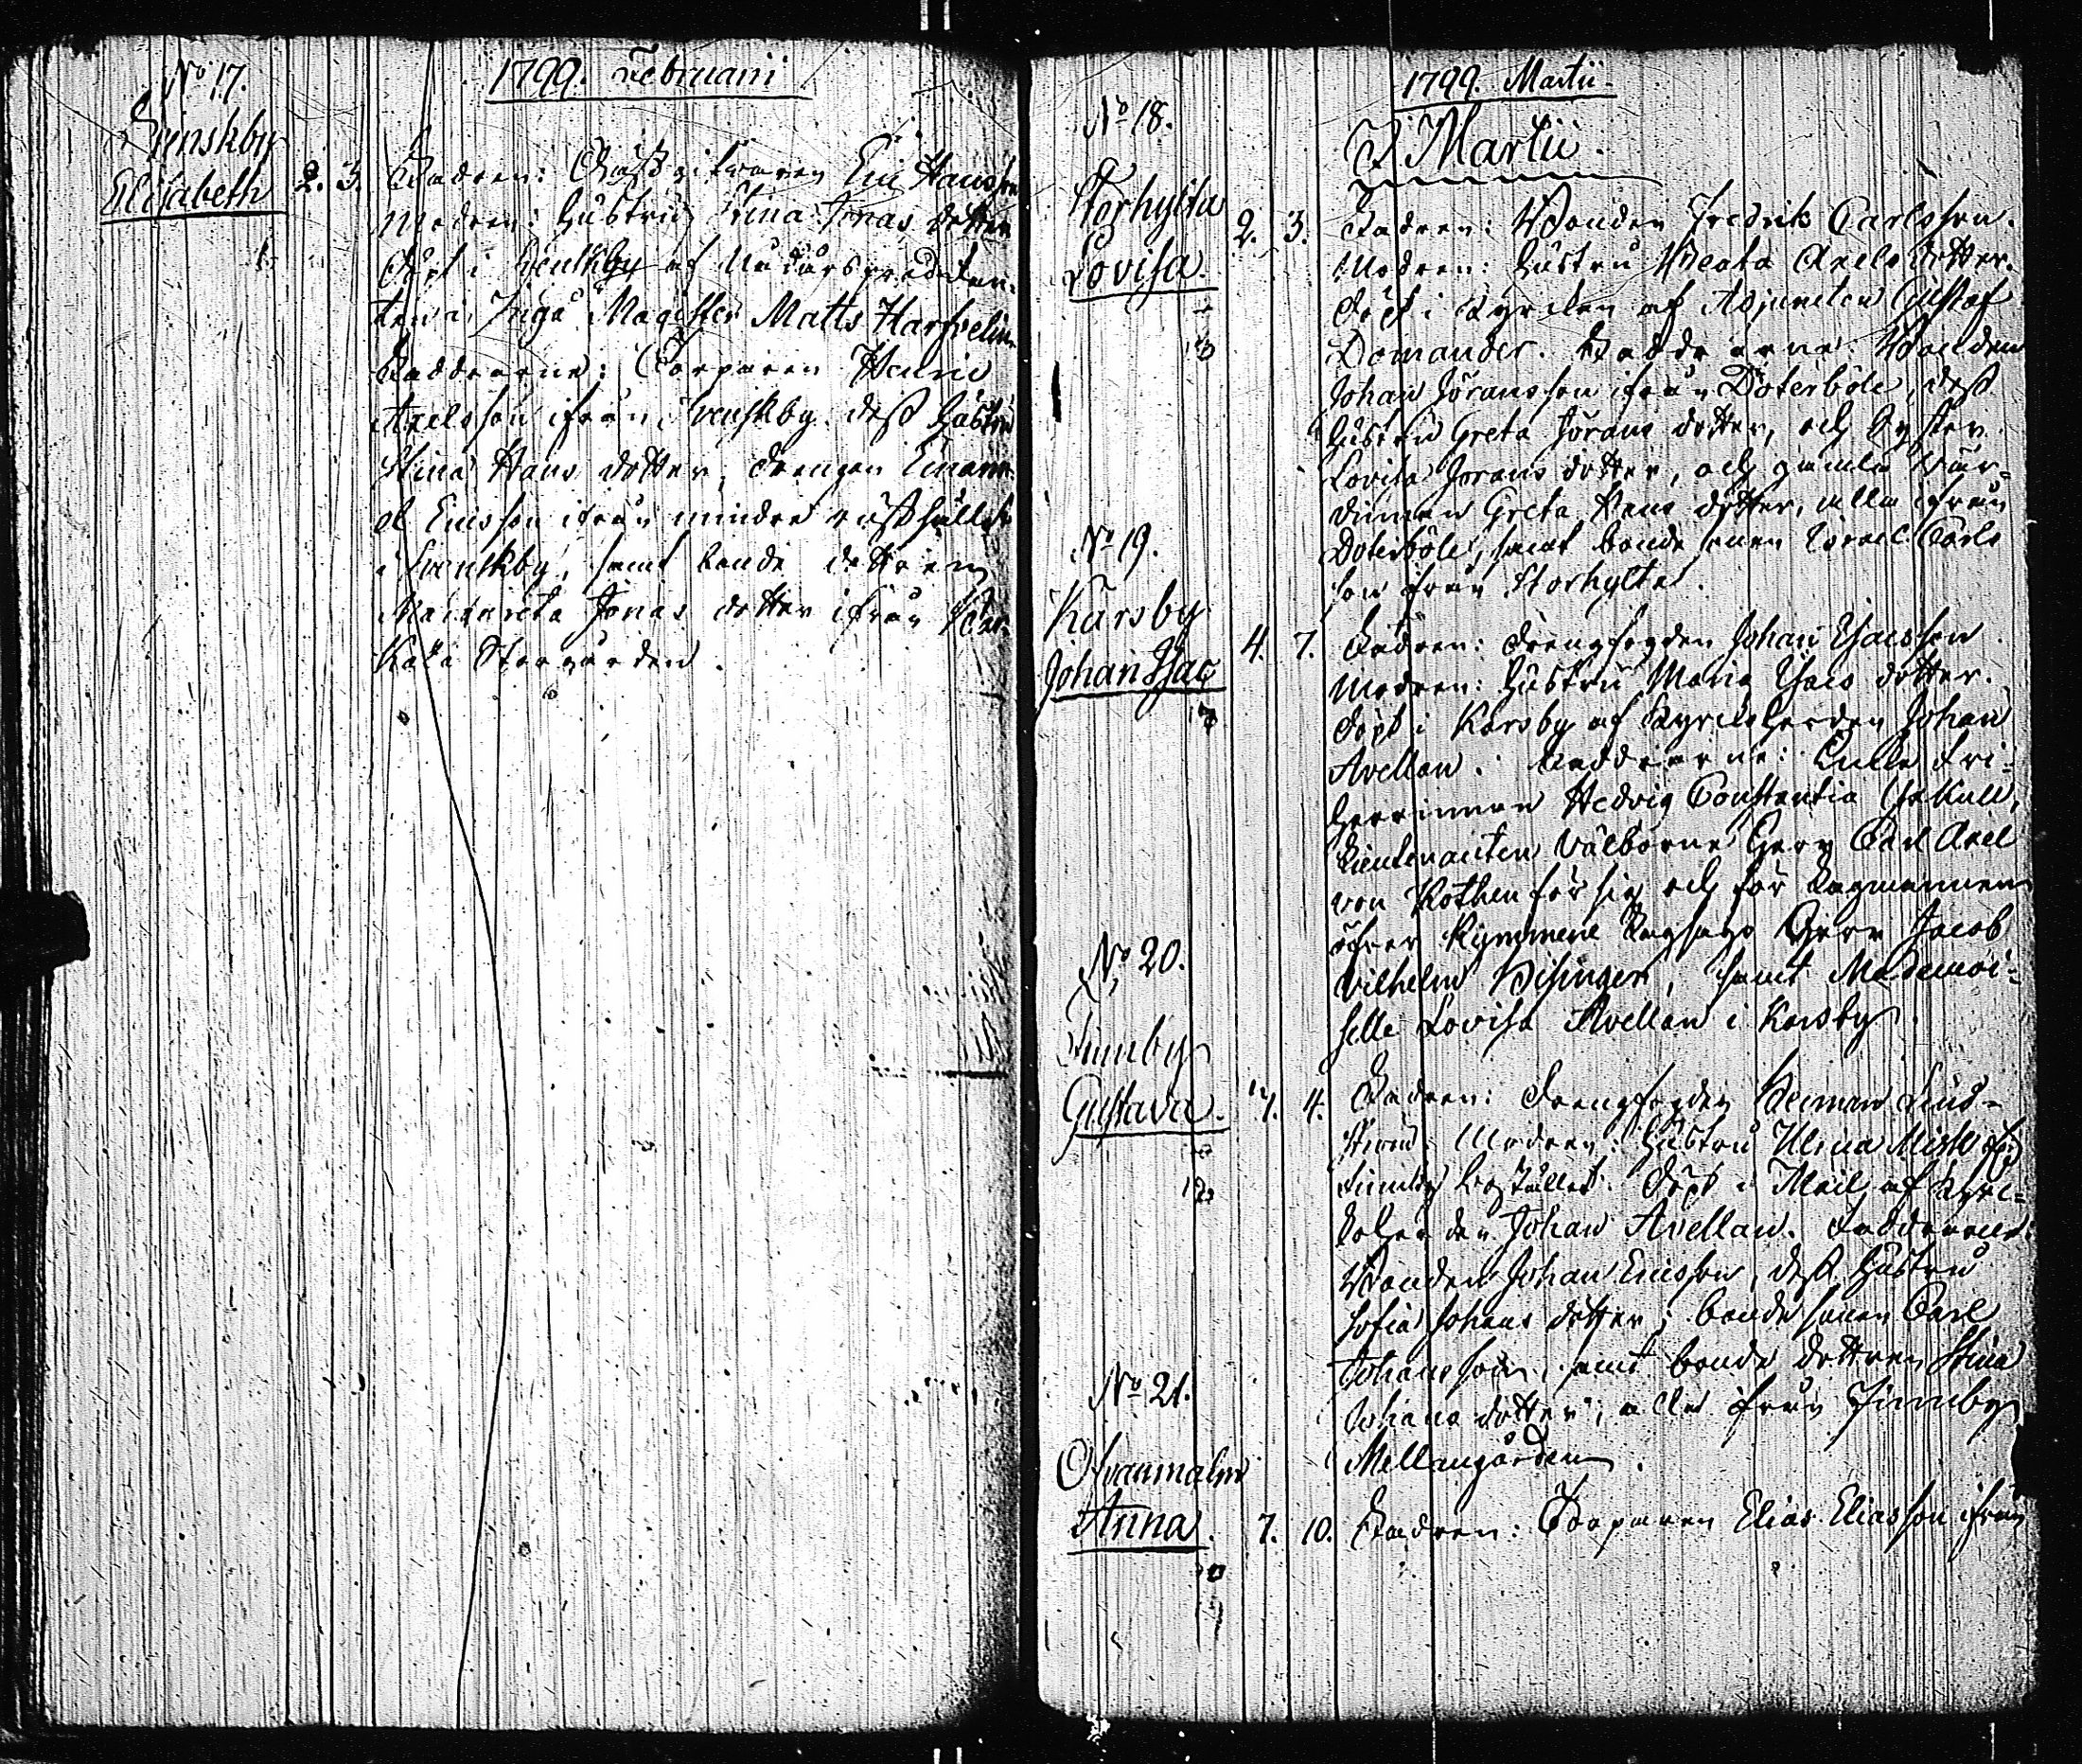 No 17.
1799. Februarii
Svenskby
Elisabeth 2. 3. Fadren: Eric Hansson
Modren: Hustru Stina Jonas dotter
Döpt i Svenskby af Nådårs predikan-
ten i Ingå Magister Matts Harfvelin
Faddrarne: Torparen Henric
Axelsson ifrån Svenskby, dess hustru
Stina Hans dotter, drengen Emanu-
el Ericsson ifrån mindre rusthållet
i Svenskby, samt bonde dottren
Margareta Jonas dotter ifrån
Storgården.
1799. Martii
I Martii.
No 18.
Storhylta
Lovisa. 2. 3. Fadren: Bonden Fredrik Carlsson.
Modren: hustru Beata Axels dotter.
Döpt i Kyrckan af Adjuncten Gustaf
Domander. Faddrarne:
Johan Jöransson ifrån Doterböle, dess
hustru Greta Jörans dotter, och Syster
Lovisa Jörans dotter, och gamla Vär-
dinnan Greta Hans dotter, alla ifrån
Doterböle, samt bonde sonen Israel Carls
son från Storhylta.
No 19.
Karsby
Johan Isac 4. 7. Fadren: Drengfogden Johan Isacsson
Modren: hustru Maria Isacs dotter.
Döpt i Karsby af Kyrckoherden Johan
Avellan. Faddrarne: Fri-
herrinnan Hedvig Constantia
Lieutenanten Välborne Herr Carl Axel
von Kothen för sig och för Lagmannen
öfver Kymmene Lagsaga Herr Jacob
Vilhelm Hisinger, samt Mademoi-
selle Lovisa Avellan i Karsby
No 20.
Finnby
Gustava. 7. 4. Fadren: Drengfogden Herman Lind-
Modren: hustru Ulrica
Finnby Boställe. Döpt i af Kyrc-
koherden Johan Avellan. Faddrarne:
Bonden Johan Ericsson, dess hustru
Sofia Johans dotter, bonde sonen Carl
Johansson, samt bonde dottren Stina
Johans dotter, alla ifrån Finnby
Mellangården.
No 21.
Ofvanmalm
Anna. 7. 10. Fadren: Torparen Elias Eliasson ifrån